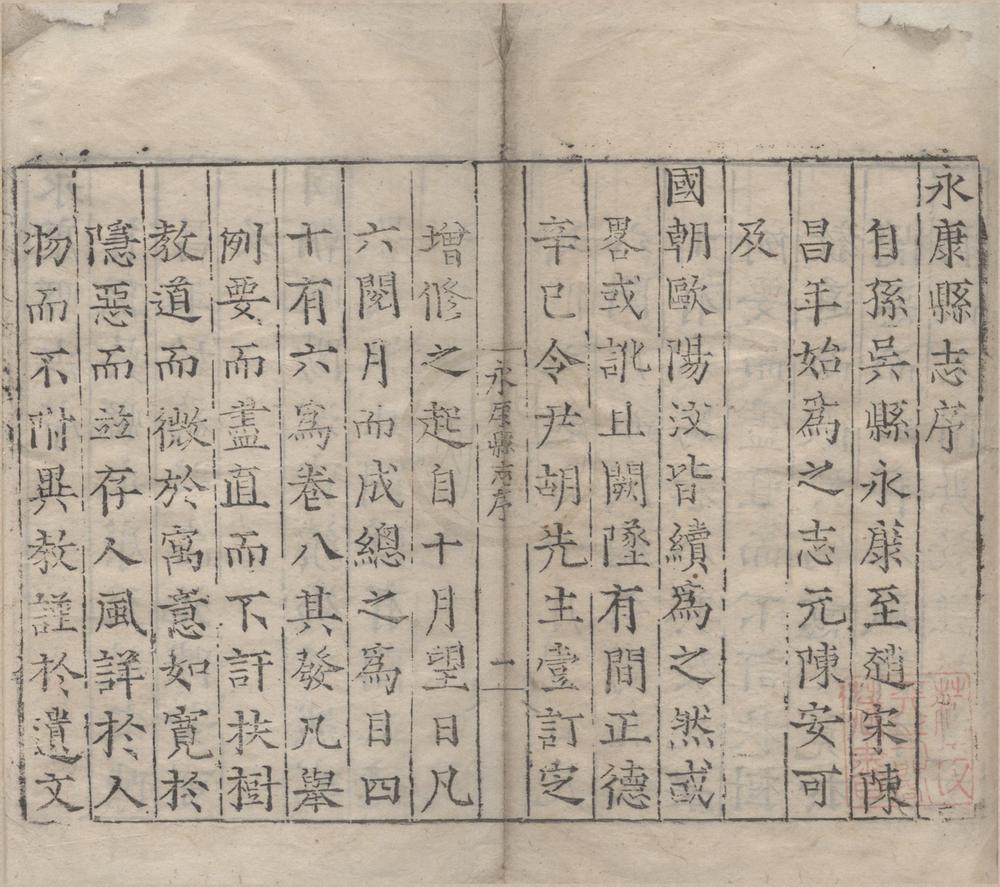 永康縣志序
自孫吳縣永康至趙宋陳
昌年始爲之志元陳安可
及
國朝歐陽汶皆續爲之然或
畧或訛且闕墜有間正德
辛巳令尹胡先生壹訂定
永康縣志序
一
增修之起自十月望日凡
六閱月而成總之爲目四
十有六爲卷八其發凡舉
例要而盡直而不訐扶樹
教道而微於寓意如寬於
隱惡而並存人風詳於人
物而不附異教謹於遺文